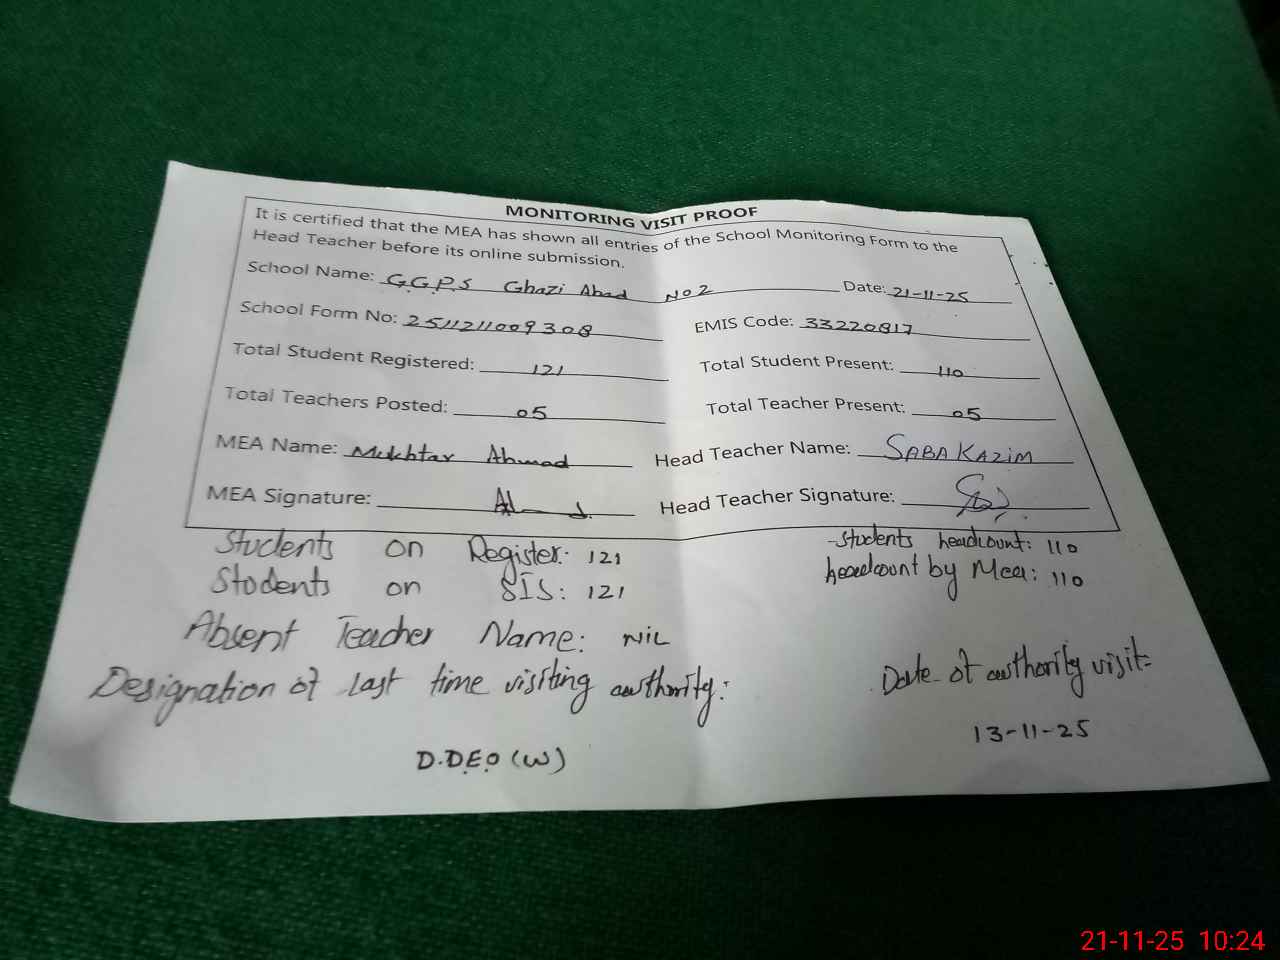 MONITORING VISIT PROOF
It is certified that the MEA has shown all entries of the School Monitoring Form to the
Head Teacher before its online submission.
School Name: G.G.P.S Ghazi Abad No 2 Date: 21-11-25
School Form No: 251121009308 EMIS Code: 33220817
Total Student Registered: 121 Total Student Present: 110
Total Teachers Posted: 05 Total Teacher Present: 05
MEA Name: Mukhtar Ahmad Head Teacher Name: SABA KAZIM
MEA Signature: Head Teacher Signature:
Students on Register: 121 -Students headcount: 110
Students on SIS: 121 headcount by Mea: 110
Absent Teacher Name: NIL
Designation of last time visiting authority: Date of authority visit:
D.D.E.O (W) 13-11-25
21-11-25 10:24